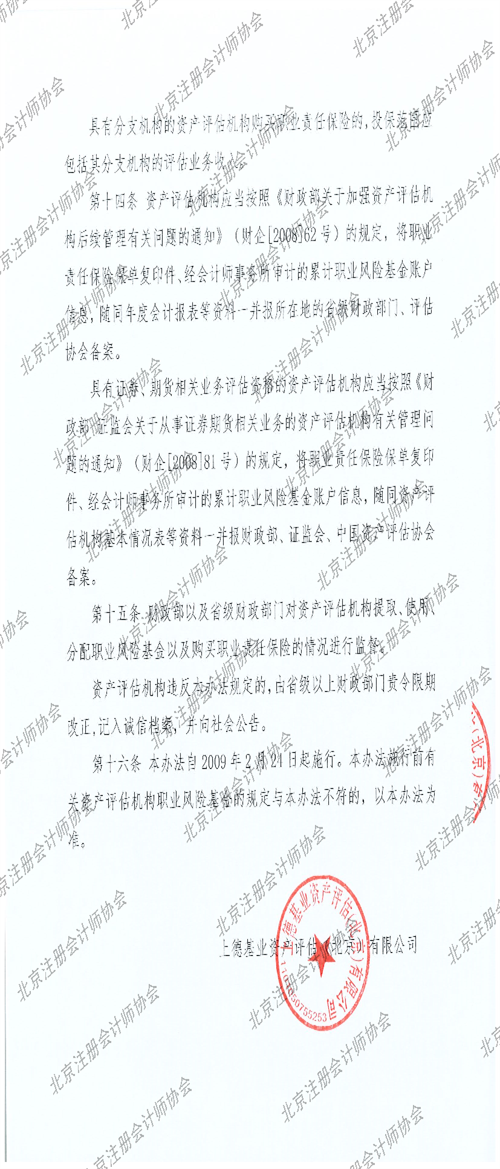 具有分支机构的资产评估机构购买职业责任保险的，投保范围应
包括其分支机构的评估业务收入。
第十四条 资产评估机构应当按照《财政部关于加强资产评估机
构后续管理有关问题的通知》（财企[2008]62号）的规定，将职业
责任保险保单复印件、经会计师事务所审计的累计职业风险基金账户
信息，随同年度会计报表等资料一并报所在地的省级财政部门、评估
协会备案。
具有证券、期货相关业务评估资格的资产评估机构应当按照《财
政部 证监会关于从事证券期货相关业务的资产评估机构有关管理问
题的通知》（财企[2008]81号）的规定，将职业责任保险保单复印
件、经会计师事务所审计的累计职业风险基金账户信息，随同资产评
估机构基本情况表等资料一并报财政部、证监会、中国资产评估协会
备案。
第十五条 财政部以及省级财政部门对资产评估机构提取、使用、
分配职业风险基金以及购买职业责任保险的情况进行监督。
资产评估机构违反本办法规定的，由省级以上财政部门责令限期
改正，记入诚信档案，并向社会公告。
第十六条 本办法自2009年2月21日起施行。本办法施行前有
关资产评估机构职业风险基金的规定与本办法不符的，以本办法为
准。
上德基业资产评估（北京）有限公司
上德基业资产评估(北京)有限公司
(北京)有
北京注册会计师协会